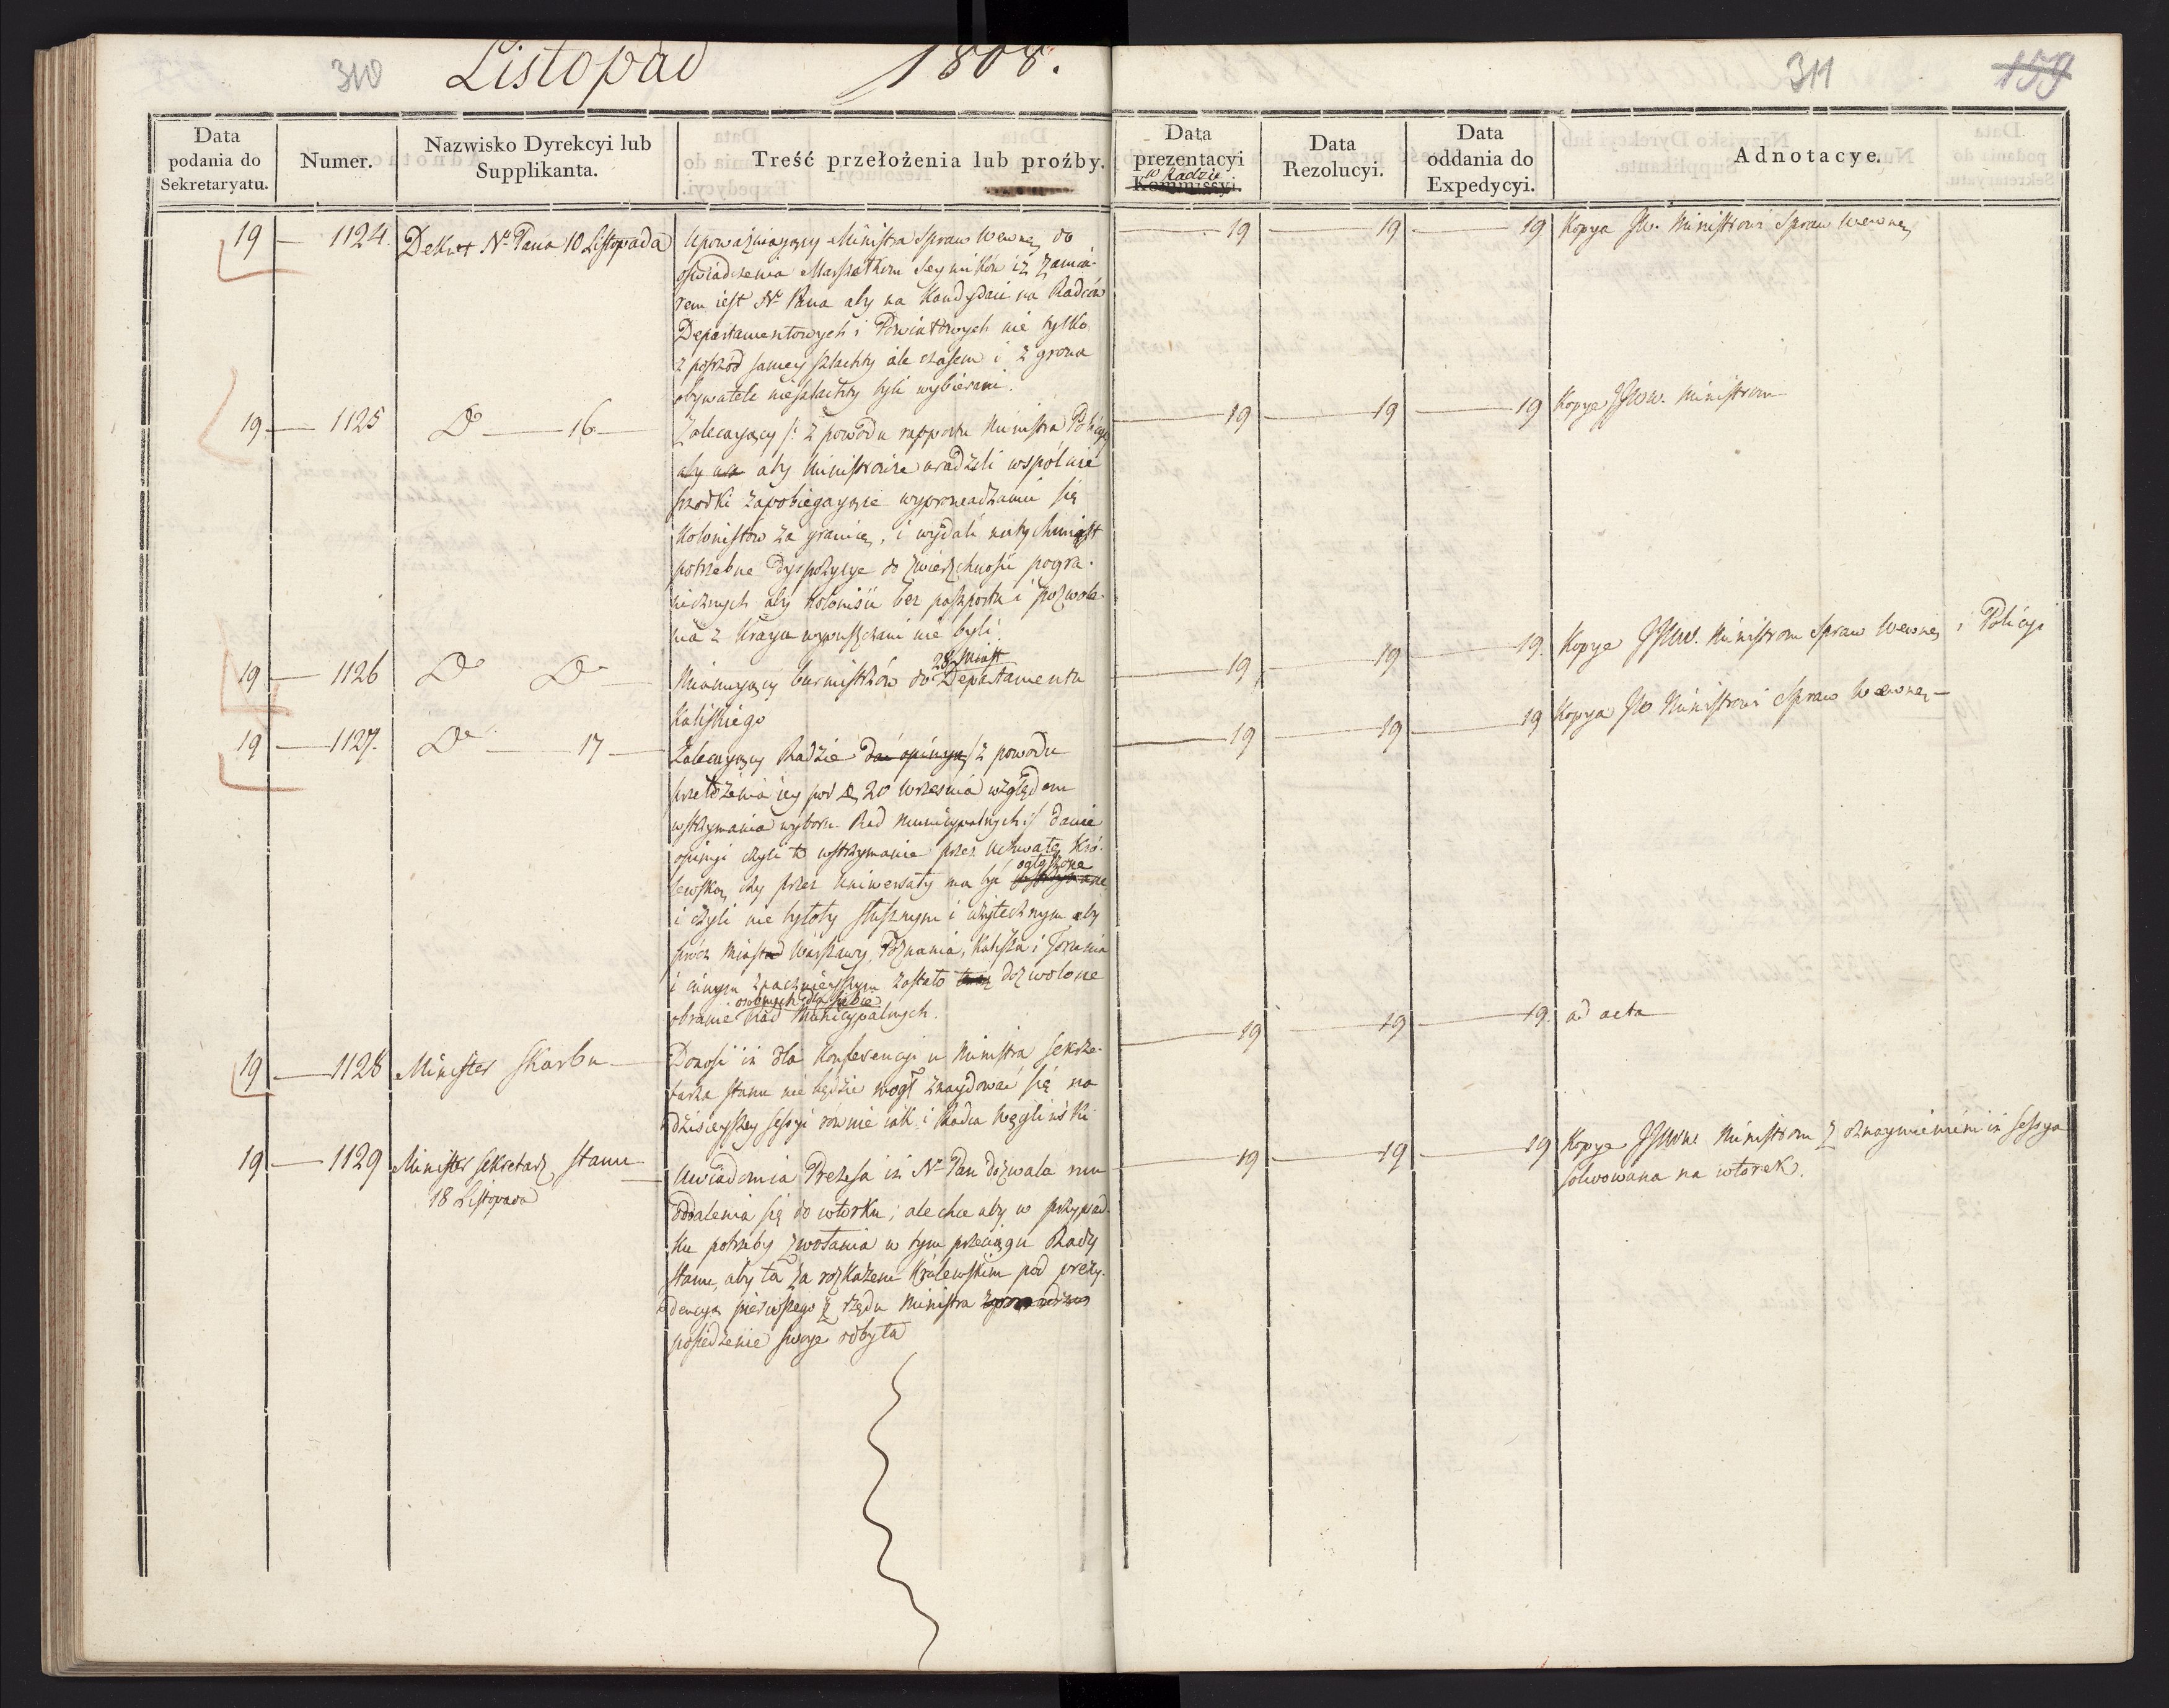 310 Listopad 1808.
311 159
Data podania do Sekretaryatu.
Numer.
Nazwisko Dyrekcyi lub Supplikanta.
Treść przełożenia lub proźby.
Data prezentacyi w Radzie Kommissyi.
Data Rezolucyi.
Data oddania do Expedycyi.
Adnotacye.
19 — 1124. Dekret Nº Pana 10 Listopada
Upoważniaiący Ministra Spraw Wewnę do
oświadczenia Marszałkom Seymików iż zamia-
rem iest Nº Pana aby na Kandydaci na Radców
Departamentowych i Powiatowych nie tylko
z pośrzód samey szlachty ale czasem i z grona
obywateli nieszlachty byli wybierani.
19 19 19 Kopya JW. Ministrowi Spraw Wewnę
19 — 1125 Dº — 16 —
Zalecaiący /: z powodu rapportu Ministra Policyi
aby na aby Ministrowie uradzili wspólnie
srzodki zapobiegaiące wyprowadzaniu się
Kolonistów za granicę, i wydali natychmiast
potrzebne dyspozycye do zwierzchności pogra-
nicznych aby Koloniści bez paszportu i pozwole-
nia z Kraju wypuszczani nie byli.
19 19 19 Kopye JJWW. Ministrom
19 — 1126 Dº Dº —
Mianuiący burmistrzów do 28 Miast Departamentu
Kaliskiego
19 19 19. Kopye JJWW. Ministrom Spraw Wewnę i Policyi
19 — 1127. Dº — 17 —
Zalecaiący Radzie dać opinyą /: z powodu
przełożenia iey pod D. 20 Września względem
wstrzymania wyboru Rad Municypalnych :/ danie
opinyi czyli to wstrzymanie przez Uchwałę Kró-
lewską, czy przez Uniwersały ma być ogłoszone
i czyli nie byłoby słusznym i użytecznym aby
prócz Miast Warszawy, Poznania, Kalisza i Torunia
i innym znacznieyszym zostało dozwolone
obranie osobnych dla siebie Rad Municypalnych.
19 19 19 Kopya JW Ministrowi Spraw Wewnę —
19 — 1128 Minister Skarbu —
Donosi iż dla Konferencyi u Ministra Sekre-
tarza Stanu nie będzie mógł znaydować się na
dzisieyszey sessyi równie iak i Radca Węgliński
19 19 19. ad acta
19 — 1129 Minister Sekretarz Stanu
18 Listopada
Uwiadomia Prezesa iż Nº Pan dozwala mu
oddalenia się do wtorku; ale chce aby w przypad-
ku potrzeby zwołania w tym przeciągu Rady
Stanu, aby ta za rozkazem Królewskim pod prezy-
dencyą pierwszego z rzędu Ministra
posiedzenie swoje odbyła
19 19 19 Kopye JJWW. Ministrom z oznaymieniem iż sessya
solwowana na wtorek.